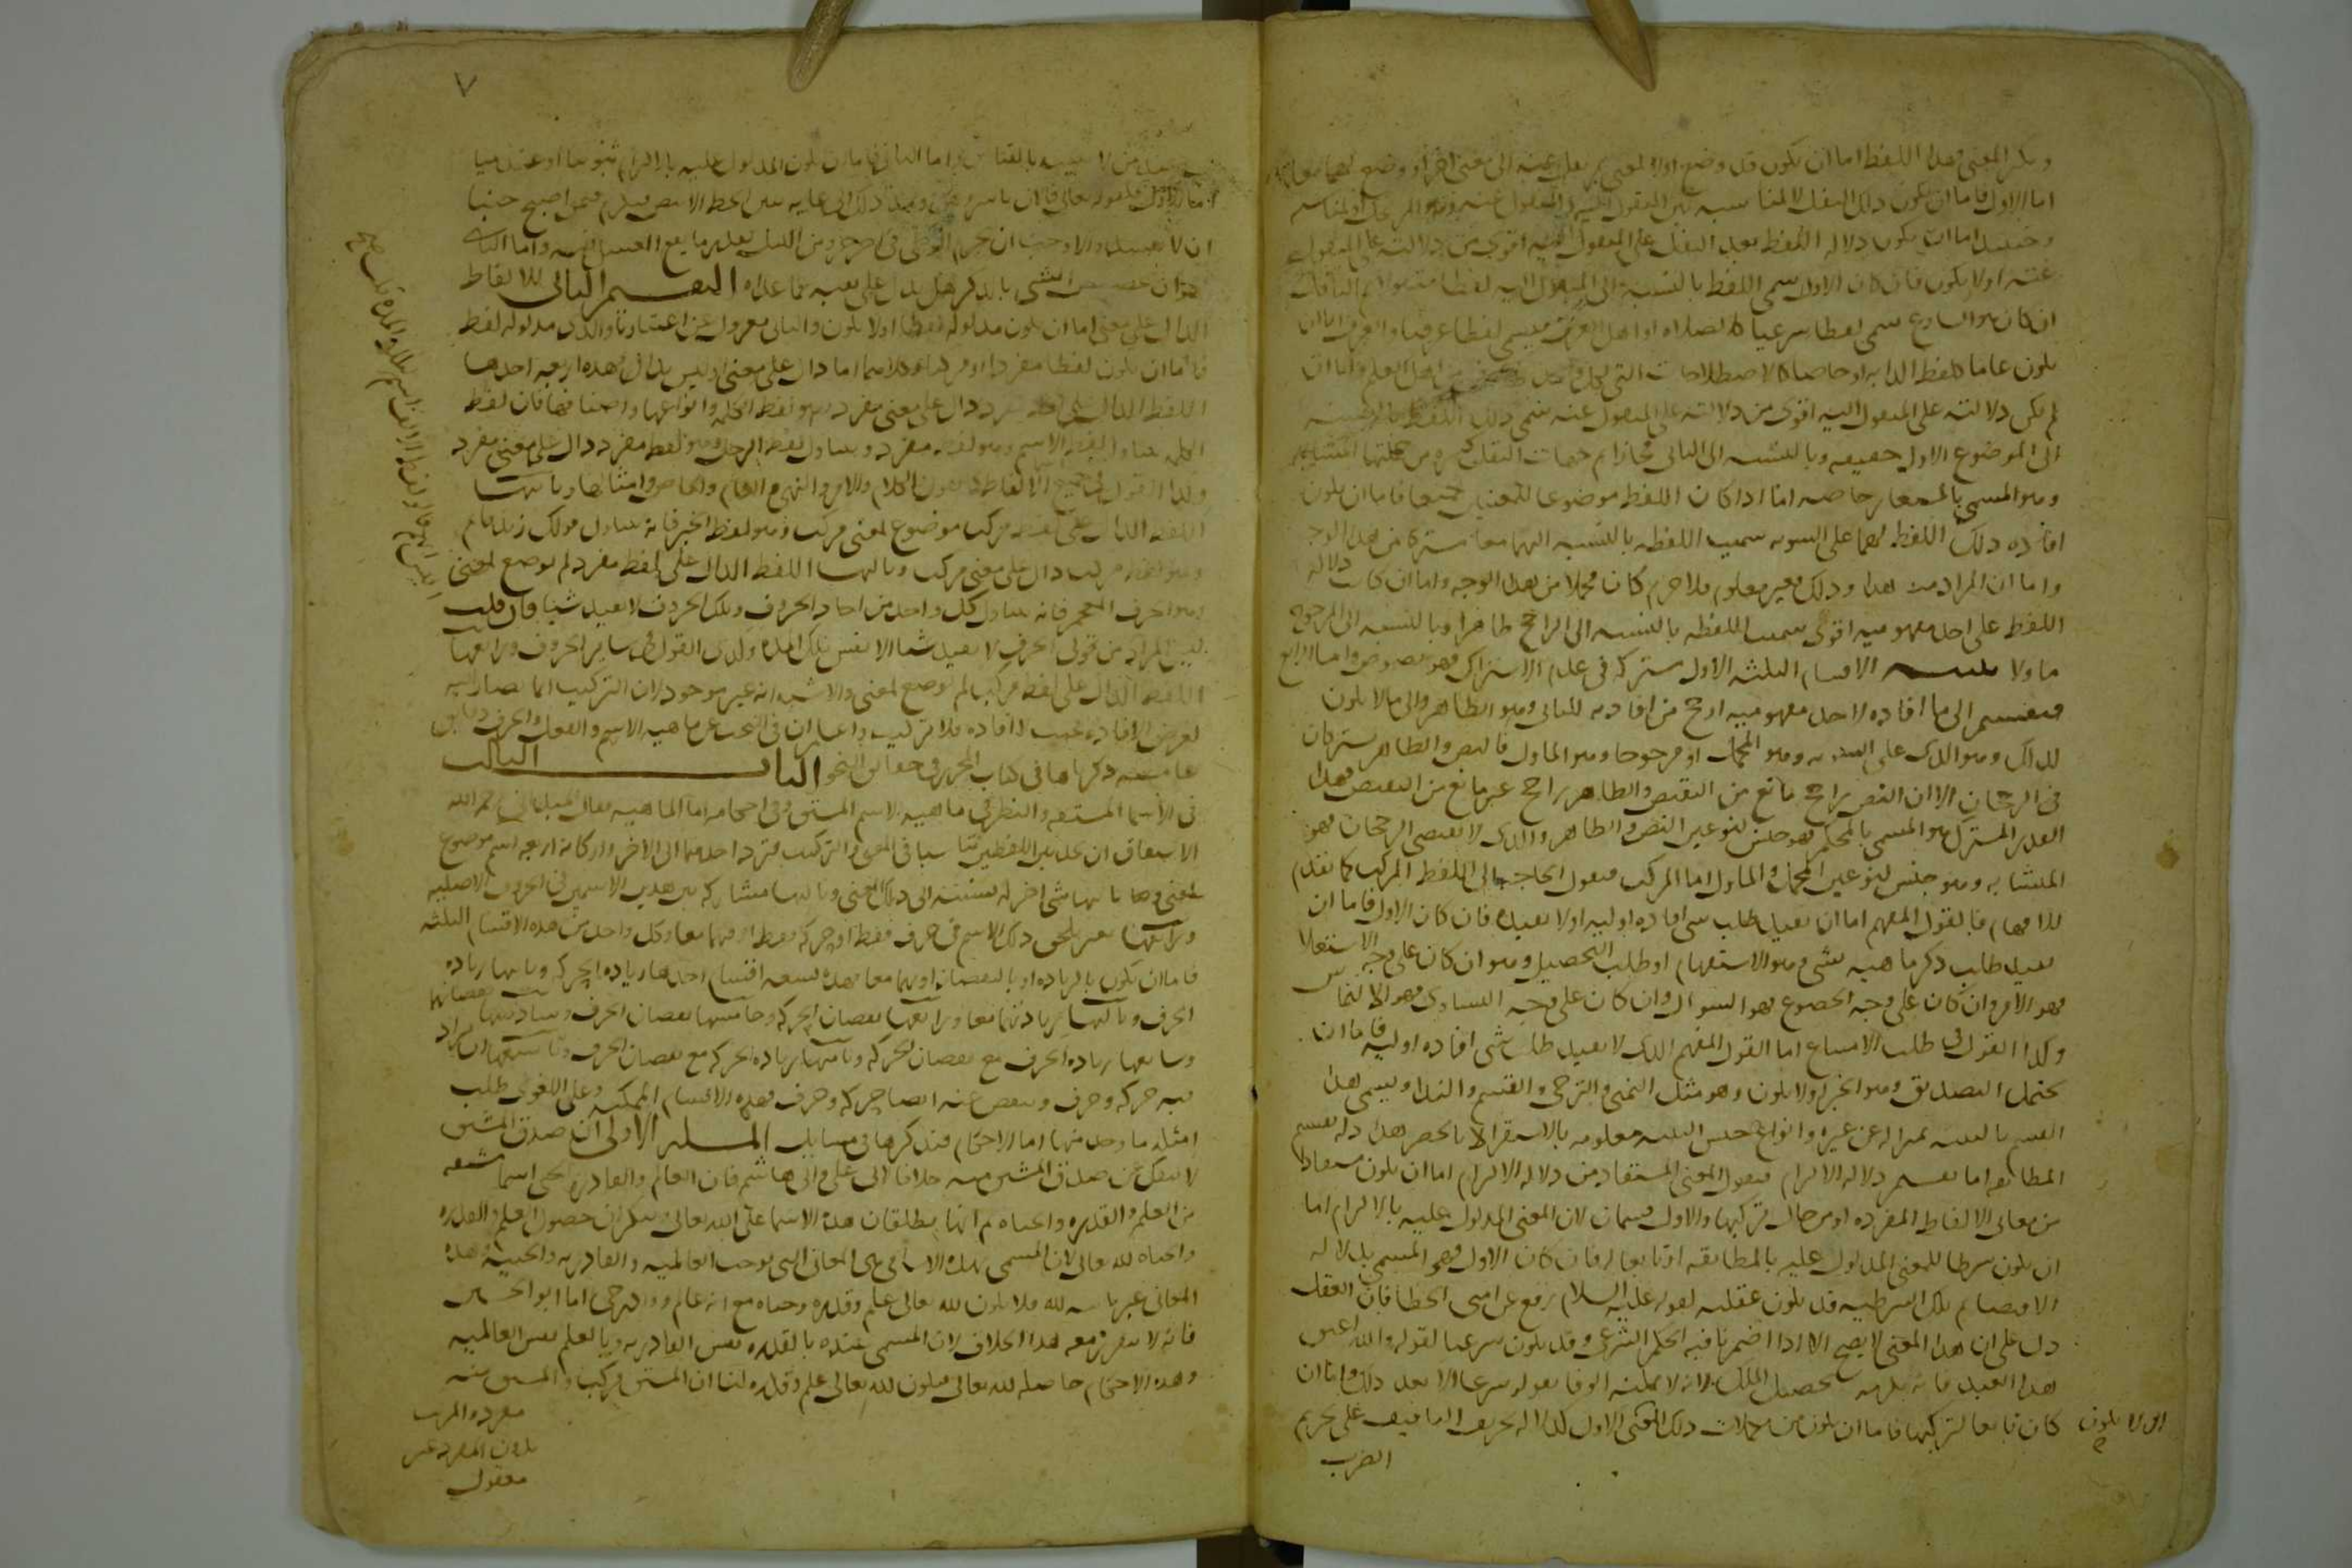 وتكثر المعنى فهذا اللفظ اما ان يكون قد وضع اولا لمعنى ثم نقل عنه الى معنى اخر او وضع لهما معا
اما الاول فاما ان يكون ذلك النقل لا لمناسبة بين المنقول اليه والمنقول عنه وهو المرتجل او لمناسبة
وحينئذ اما ان يكون دلالة اللفظ بعد النقل على المنقول اليه اقوى من دلالته على المنقول
عنه او لا يكون فان كان الاول سمى اللفظ بالنسبة الى المنقول اليه لفظا منقولا ثم الناقل
ان كان هو الشارع سمى لفظا شرعيا كالصلاة او اهل العرف فيسمى لفظا عرفيا والعرف اما ان
يكون عاما كلفظ الدابة او خاصا كالاصطلاحات التى لكل من اهل العلم واما ان
لم يكن دلالته على المنقول اليه اقوى من دلالته على المنقول عنه سمى ذلك اللفظ بالنسبة
الى الموضوع الاول حقيقة وبالنسبة الى الثانى مجازا ثم جهات النقل كثيرة من جملتها المشابهة
وهو المسمى بالمستعار خاصة اما اذا كان اللفظ موضوعا للمعنيين جميعا فاما ان يكون
افادة ذلك اللفظ لهما على السوية سميت اللفظة بالنسبة اليهما معا مشتركا من هذا الوجه
واما ان المراد منه هذا وذلك غير معلوم فلا جرم كان مجملا من هذا الوجه واما ان كانت دلالة
اللفظ على احد مفهوميه اقوى سميت اللفظة بالنسبة الى الراجح ظاهرا وبالنسبة الى المرجوح
ماولا تنبيه الاقسام الثلثة الاول مشتركة فى عدم الاشتراك فهو نصوص واما الرابع
فينقسم الى ما افاده لاحد مفهوميه ارجح من افادته للثانى وهو الظاهر والى ما لا يكون
كذلك وهو الذى على السوية وهو المجمل او مرجوحا وهو الماول فالنص والظاهر يشتركان
فى الرجحان الا ان النص راجح مانع من النقيض والظاهر راجح غير مانع من النقيض فهذا
القدر المشترك هو المسمى بالمحكم فهو جنس لنوعين النص والظاهر والذى لا يقتضى الرجحان فهو
المتشابه وهو جنس لنوعين المجمل والماول اما المركب فنقول الحاجة الى اللفظ المركب كما تقدم
للافهام فالقول المفهم اما ان يفيد طلب شى افادة اولية او لا يفيده فان كان الاول فاما ان
يفيد طلب ذكر ماهية شى وهو الاستفهام او طلب التحصيل وهو ان كان على وجه الاستعلا
فهو الامر وان كان على وجه الخضوع فهو السوال وان كان على وجه التساوى فهو الالتماس
وكذا القول فى طلب الامتناع اما القول المفهم الذى لا يفيد طلب شى افادة اولية فاما ان
يحتمل التصديق وهو الخبر او لا يكون وهو مثل التمنى والترجى والقسم والندا ويسمى هذا
القسم بالتنبيه تمييزا له عن غيره وانواع جنس التنبيه معلومة بالاستقرا لا بالحصر هذا دلة تقسيم
المطابقة اما تقسيم دلالة الالتزام فنقول المعنى المستفاد من دلالة الالتزام اما ان يكون مستفادا
من معانى الالفاظ المفردة او من حال تركيبها والاول قسمان لان المعنى المدلول عليه بالالتزام اما
ان يكون شرطا للمعنى المدلول عليه بالمطابقة او تابعا له فان كان الاول فهو المسمى بدلالة
الاقتضا ثم تلك الشرطية قد يكون عقلية لقوله عليه السلام رفع عن امتى الخطا فان العقل
دل على ان هذا المعنى لا يصح الا اذا اضمرنا فيه الحكم الشرعى وقد يكون شرعيا لقوله والله لاعتق
هذا العبد فانه يلزمه تحصيل الملك لانه لا يمكنه الوفا بقوله شرعا الا بعد ذلك واما ان
كان تابعا لتركيبها فاما ان يكون من مكملات ذلك المعنى الاول كدلالة تحريم التافيف على تحريم
او لا يكون
الضرب
٧
اما الاول فكقوله تعالى فالان باشروهن ومد ذلك الى غاية تبين الخيط الابيض فيلزم فيمن اصبح جنبا
ان لا يفسد صومه والا وجب ان يحرم الوطى فى اخر جزء من الليل بقدر ما يقع الغسل فيه واما الثانى
فهو ان تخصيص الشى بالذكر هل يدل على نفيه عما عداه التقسيم الثانى للالفاظ
الدال على معنى اما ان يكون مدلوله لفظا او لا يكون والثانى معزول عن اعتبارنا والذى مدلوله لفظ
فاما ان يكون لفظا مفردا او مركبا وكلاهما اما دال على معنى او ليس بدال فهذه اربعة احدها
اللفظ الدال على لفظ مفرد دال على معنى مفرد وهو لفظ الكلمة وانواعها واصنافها فان لفظ
الكلمة يتناول لفظ الاسم وهو لفظ مفرد ويتناول لفظ الرجل وهو لفظ مفرد دال على معنى مفرد
وكذا القول فى جميع الالفاظ كقول الكلام والامر والنهى والعام والخاص وامثالها وثانيها
اللفظ الدال على لفظ مركب موضوع لمعنى مركب وهو لفظ الخبر فانه يتناول قولك زيد قايم
وهو لفظ مركب دال على معنى مركب وثالثها اللفظ الدال على لفظ مفرد لم يوضع لمعنى
وهو الحرف المعجم فانه يتناول كل واحد من احاد الحروف وتلك الحروف لا يفيد شيا فان قلت
ليس المراد من قولى الحرف لا يفيد شيا الا نفس تلك المادة وكذى القول فى ساير الحروف ورابعها
اللفظ الدال على لفظ مركب لم يوضع لمعنى والاشبه انه غير موجود لان التركيب انما يصار اليه
لغرض الافادة فحيث لا افادة فلا تركيب واعلم ان فى البحث عن ماهية الاسم والفعل والحرف دقايق
غامضة ذكرناها فى كتاب المحرر فى حقايق النحو الباب الثالث
فى الاسما المشتقة والنظر فى ماهية الاسم المشتق وفى احكامه اما الماهية فقال الميدانى رحمه الله
الاشتقاق ان تجد بين اللفظين تناسبا فى المعنى والتركيب فترد احدهما الى الاخر واركانه اربعة اسم موضوع
لمعنى وثانيها شى اخر له نسبة الى ذلك المعنى وثالثها مشاركة بين هذين الاسمين فى الحروف الاصلية
ورابعها تغير يلحق ذلك الاسم فى حرف فقط او حركة فقط او فيهما معا وكل واحد من هذه الاقسام الثلثة
فاما ان يكون بالزيادة او بالنقصان او بهما معا فهذه تسعة اقسام احدها زيادة الحركة وثانيها زيادة
الحرف وثالثها زيادتهما معا ورابعها نقصان الحركة وخامسها نقصان الحرف وسادسها نقصانهما
وسابعها زيادة الحرف مع نقصان الحركة وثامنها زيادة الحركة مع نقصان الحرف وتاسعها ان يزاد
فيه حركة وحرف وينقص عنه ايضا حركة وحرف فهذه الاقسام الممكنة وعلى اللغوى طلب
امثلة ما وجد منها اما الاحكام فنذكرها فى مسايل المسلة الاولى ان صدق المشتق
لا ينفك عن صدق المشتق منه خلافا لابى على وابى هاشم فان العالم والقادر والحى اسما مشتقة
من العلم والقدرة والحياة ثم انهما يطلقان هذه الاسما على الله تعالى وينكران حصول العلم والقدرة
والحياة لله تعالى لان المسمى بهذه الاسامى هى المعانى التى توجب العالمية والقادرية والحيية وهذه
المعانى غير ثابتة لله فلا يكون لله تعالى علم وقدرة وحياة مع انه عالم وقادر حى اما ابو الحسين
فانه لا يتقرر معه هذا الخلاف لان المسمى عنده بالقدرة نفس القادرية وبالعلم نفس العالمية
وهذه الاحكام حاصلة لله تعالى فيكون لله تعالى علم وقدرة لنا ان المشتق مركب والمشتق منه
مفرد والمركب
بدون المفرد غير
معقول